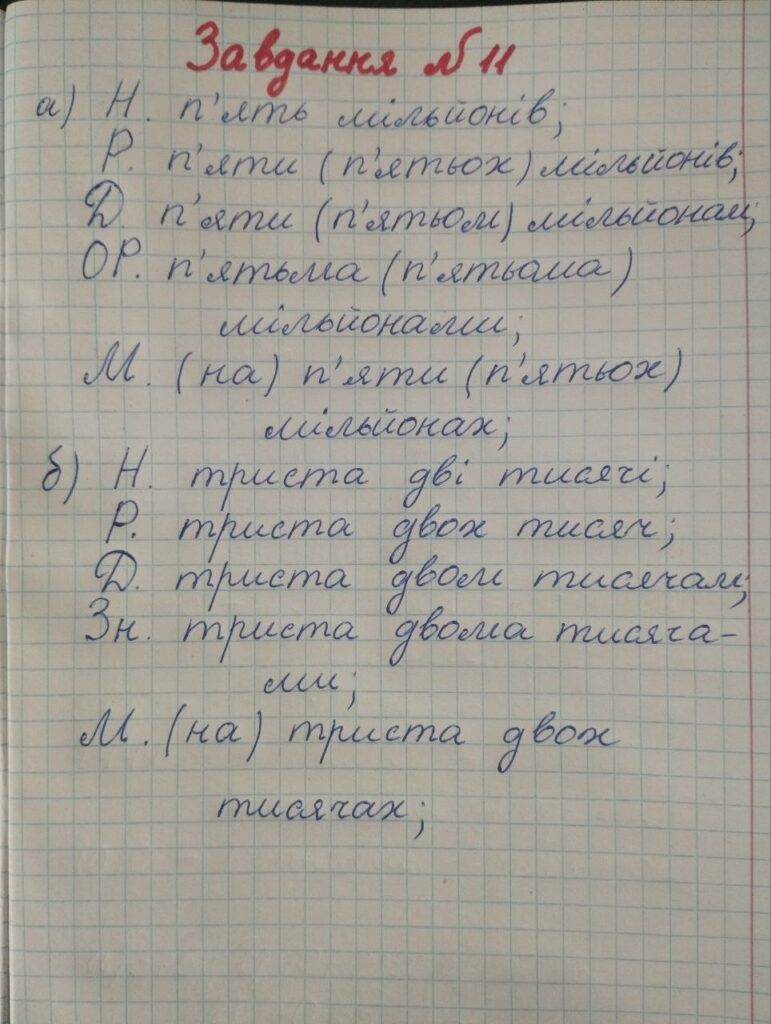 Завдання №11
а) Н. п'ять мільйонів;
Р. п'яти (п'ятьох) мільйонів;
Д. п'яти (п'ятьом) мільйонам;
ОР. п'ятьма (п'ятьома)
мільйонами;
М. (на) п'яти (п'ятьох)
мільйонах;
б) Н. триста дві тисячі;
Р. триста двох тисяч;
Д. триста двом тисячам;
Зн. триста двома тисяча-
ми;
М. (на) триста двох
тисячах;